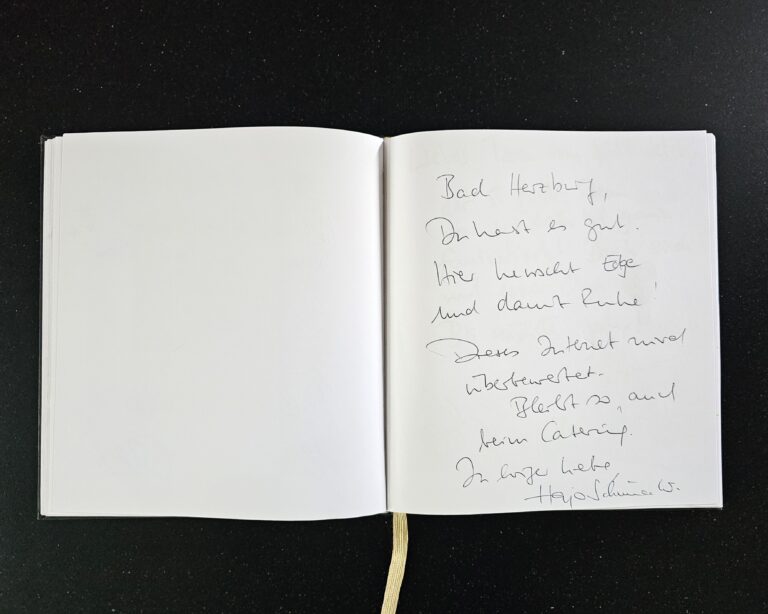 Bad Herzburg,
Du hast es gut.
Hier herrscht Edge
und damit Ruhe!
Dieses Internet wird
überbewertet.
Bleibt so, auch
beim Catering.
In ewiger Liebe,
Hajo Schumacher